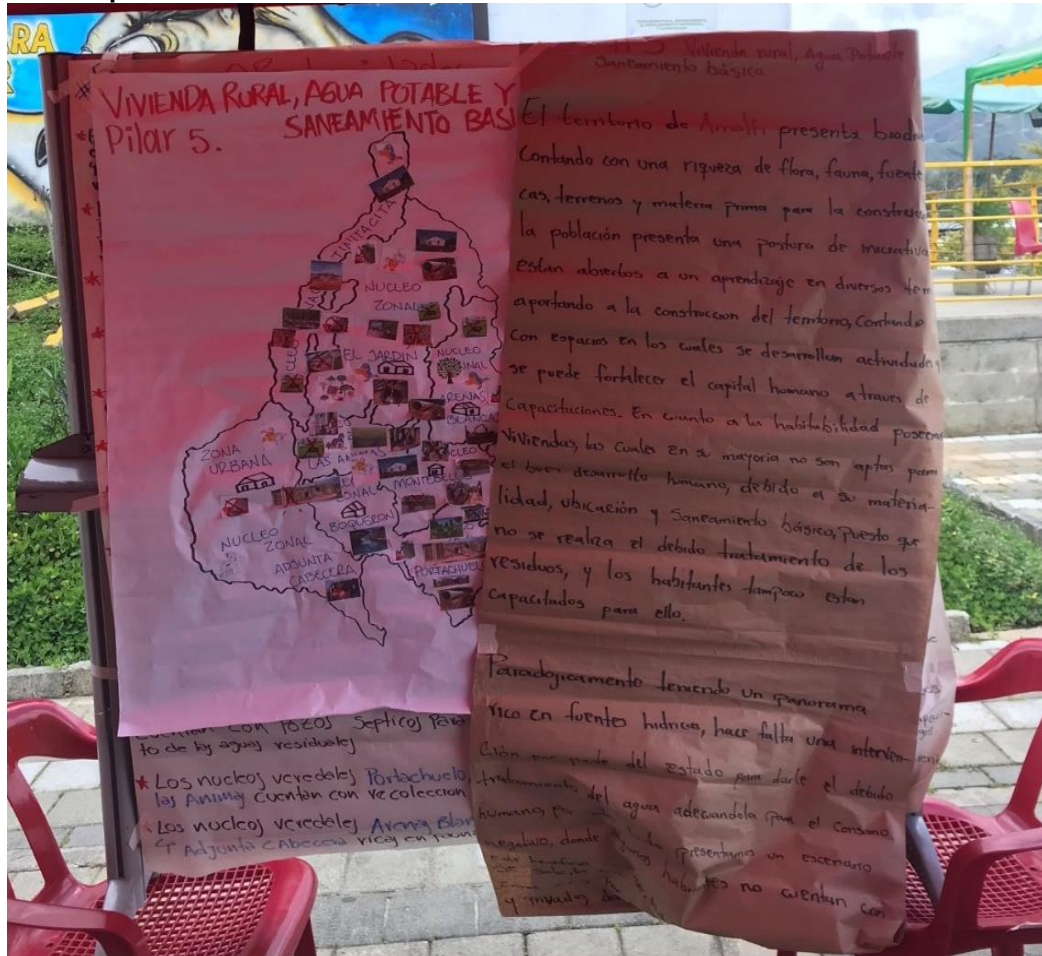 RA
VIVIENDA RURAL, AGUA POTABLE Y
Pilar 5. SANEAMIENTO BASI
TINITACITA
NUCLEO
ZONAL
EL JARDIN
NUCLEO
ZONAL
ARENAS
BLANCA
ZONA
URBANA
LAS ANIMAS
NUCLEO
ZONAL
MONTEBELLO
BOQUERON
NUCLEO
ZONAL
ADJUNTA
CABECERA
PORTACHUELO
con pozos septicos para
to de las aguas residuales
* Los nucleos veredales Portachuelo,
las Animas cuentan con recoleccion
* Los nucleos veredales Arenas Blan
y Adjunta Cabecera ricos en
Vivienda rural, Agua Potable
Saneamiento básico.
El territorio de Amalfi presenta biodi
Contando con una riqueza de flora, fauna, fuente
cas, terrenos y materia prima para la construc
la población presenta una postora de
estan abiertos a un aprendizaje en diversos tem
aportando a la construccion del territorio, Contando
Con espacios en los cuales se desarrollan actividades
se puede fortalecer el capital humano atraves de
Capacitaciones. En cuanto a la habitabilidad poseen
Viviendas, las Cuales en su mayoria no son aptas para
el buen desarrollo humano, debido a su materia-
lidad, ubicación y Saneamiento básico, puesto que
no se realiza el debido tratamiento de los
residuos, y los habitantes tampoco estan
Capacitados para ello.
Paradojicamente teniendo un panorama
rico en fuentes hidrica, hace falta una interven-
ción por parte del estado para darle el debido
tratamiento del agua adecuandola para el consumo
humano, por
negativo, donde presentamos un escenario
no cuentan con